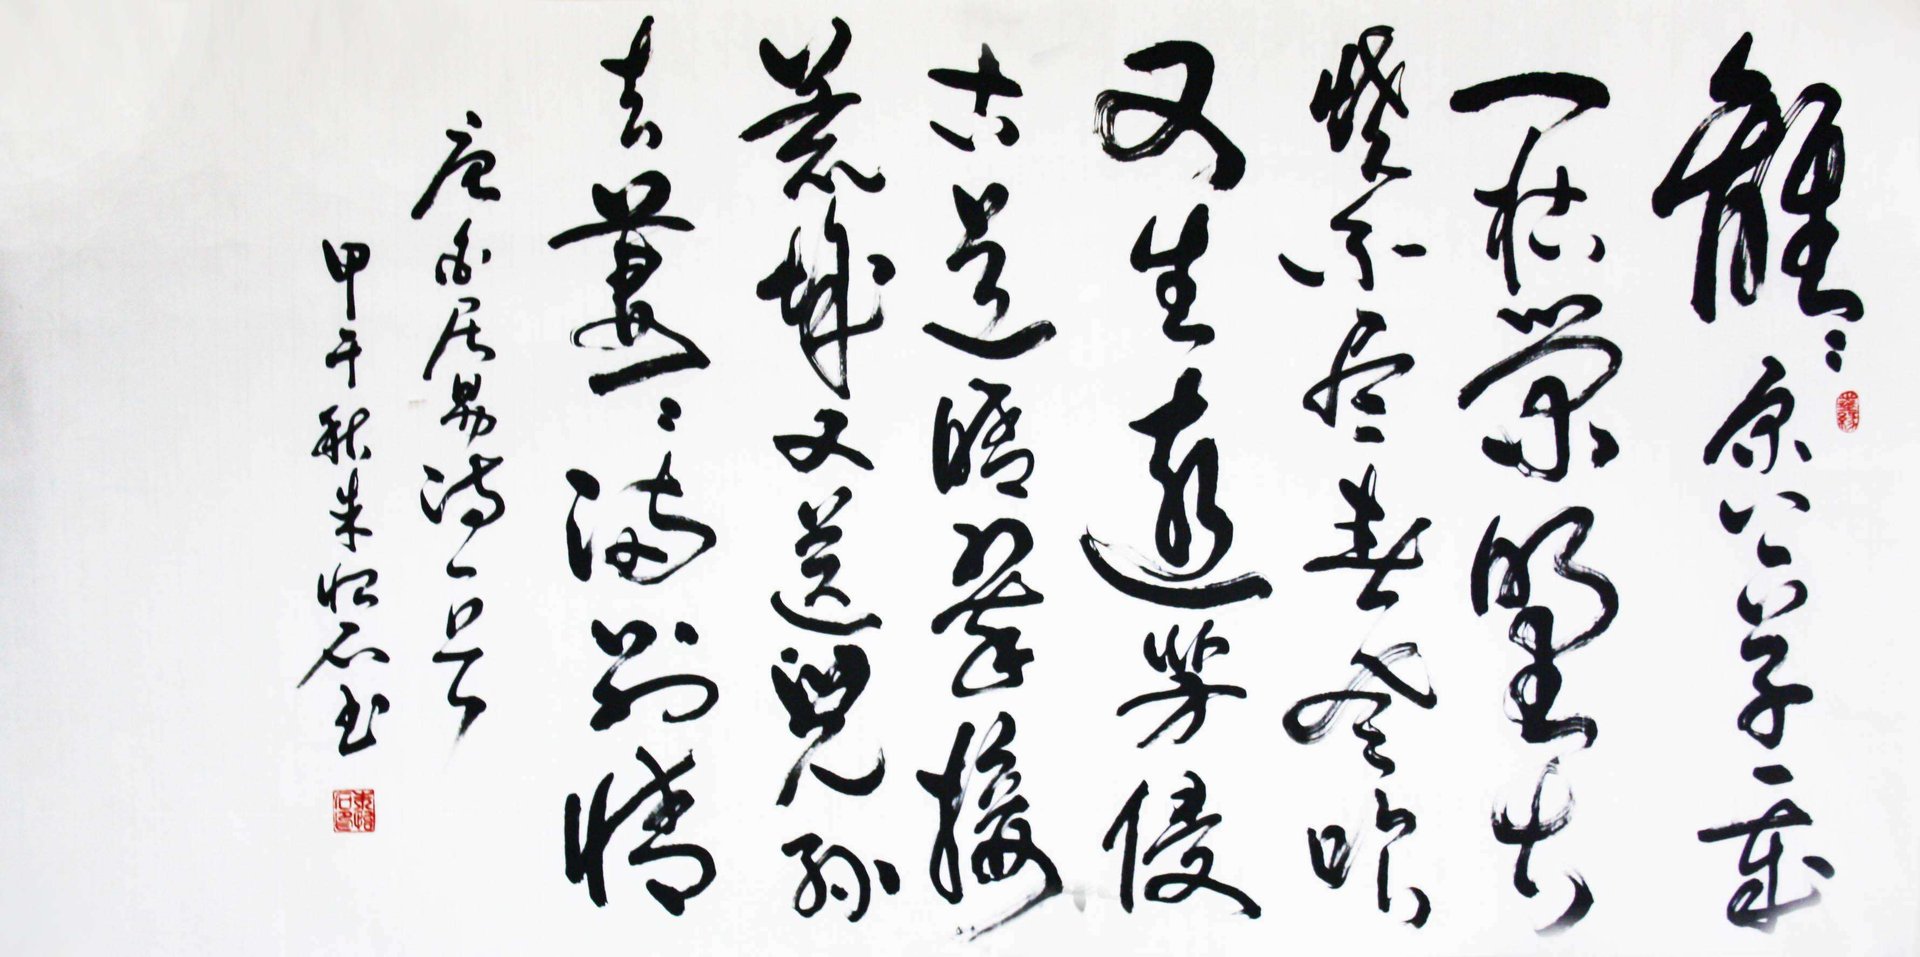 離〻原上草一歲
一枯榮野火
燒不尽春風吹
又生遠芳侵
古道晴翠接
荒城又送兒孫
去萋〻滿別情
唐白居易詩一首
甲午秋朱怀石书